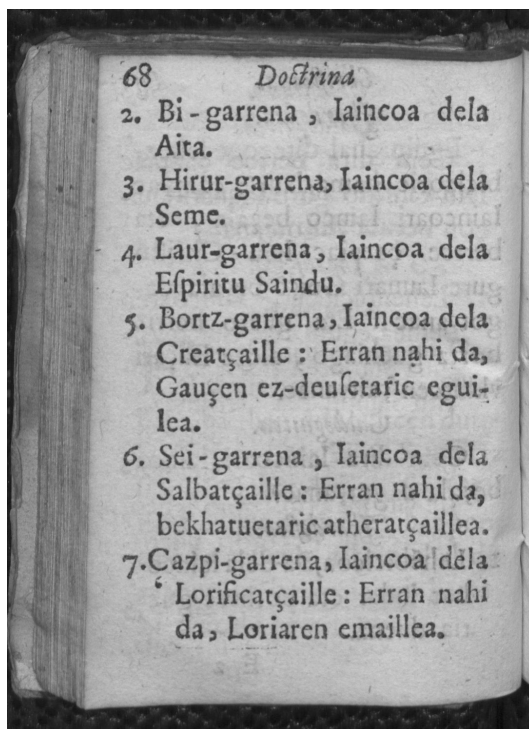 68 Doctrina
2. Bi-garrena , Iaincoa dela
Aita.
3. Hirur-garrena, Iaincoa dela
Seme.
4. Laur-garrena, Iaincoa dela
Eſpiritu Saindu.
5. Bortz-garrena, Iaincoa dela
Creatçaille : Erran nahi da,
Gauçen ez-deuſetaric egui-
lea.
6. Sei-garrena , Iaincoa dela
Salbatçaille : Erran nahi da,
bekhatuetaric atheratçaillea.
7. Cazpi-garrena, Iaincoa dela
Lorificatçaille : Erran nahi
da, Loriaren emaillea.